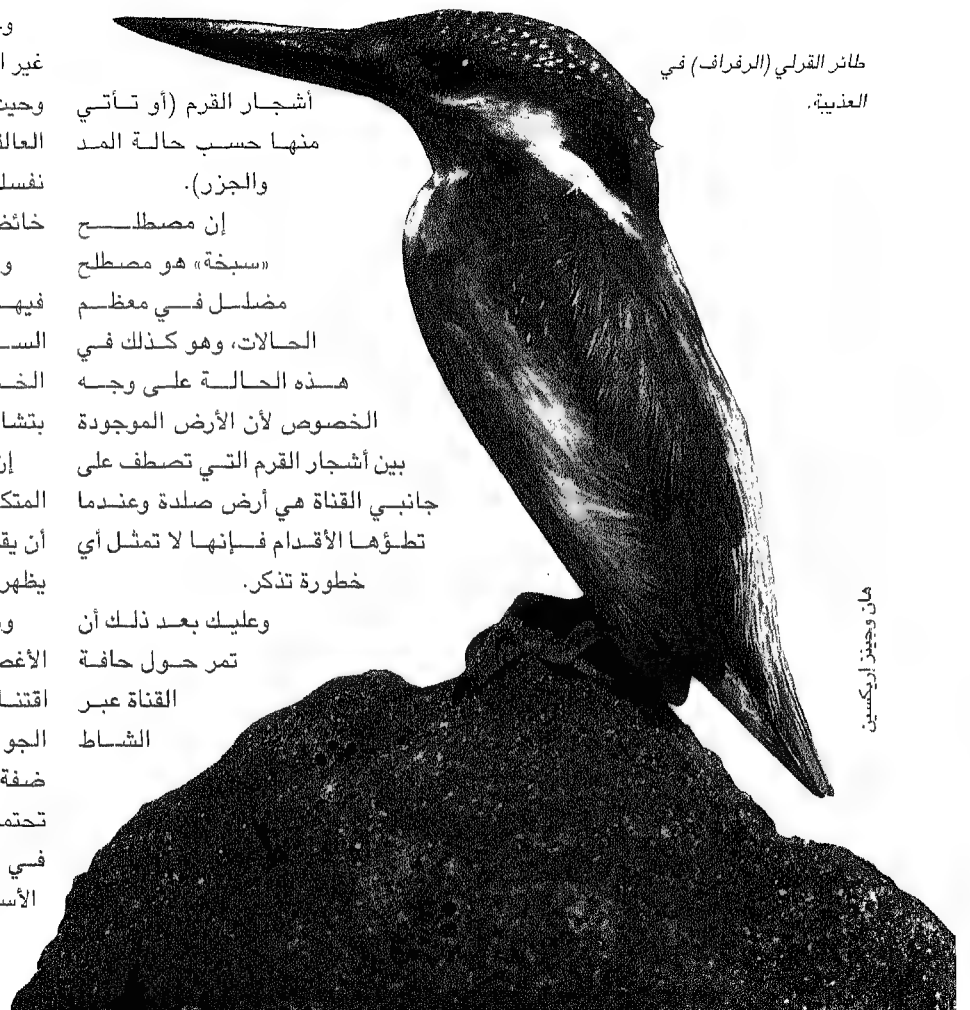 طائر القرلي (الرفراف) في
العذيبة.
أشجار القرم (أو تأتي
منها حسب حالة المد
والجزر).
إن مصطلح
«سبخة» هو مصطلح
مضلل في معظم
الحالات، وهو كذلك في
هذه الحالة على وجه
الخصوص لأن الأرض الموجودة
بين أشجار القرم التي تصطف على
جانبي القناة هي أرض صلدة وعندما
تطؤها الأقدام فإنها لا تمثل أي
خطورة تذكر.
وعليك بعد ذلك أن
تمر حول حافة
القناة عبر
الشاط
هان وجينز إريكسين
غير
وحيث
نفسل
خائض
فيهـ
السـ
الخـ
بتشا
إن
المتك
أن يق
يظهر
الأغص
اقتنـا
الجو
ضفة
تحتمـ
في
الأسـ